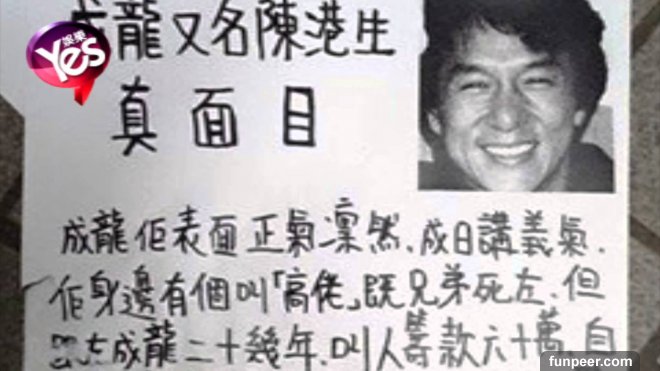 娛樂
Yes
成龍又名陳港生
真面目
成龍佢表面正氣凜然、成日講義氣、
佢身邊有個叫「高佬」既兄弟死左、但
成龍二十幾年、叫人籌款六十萬、自
funpeer.com